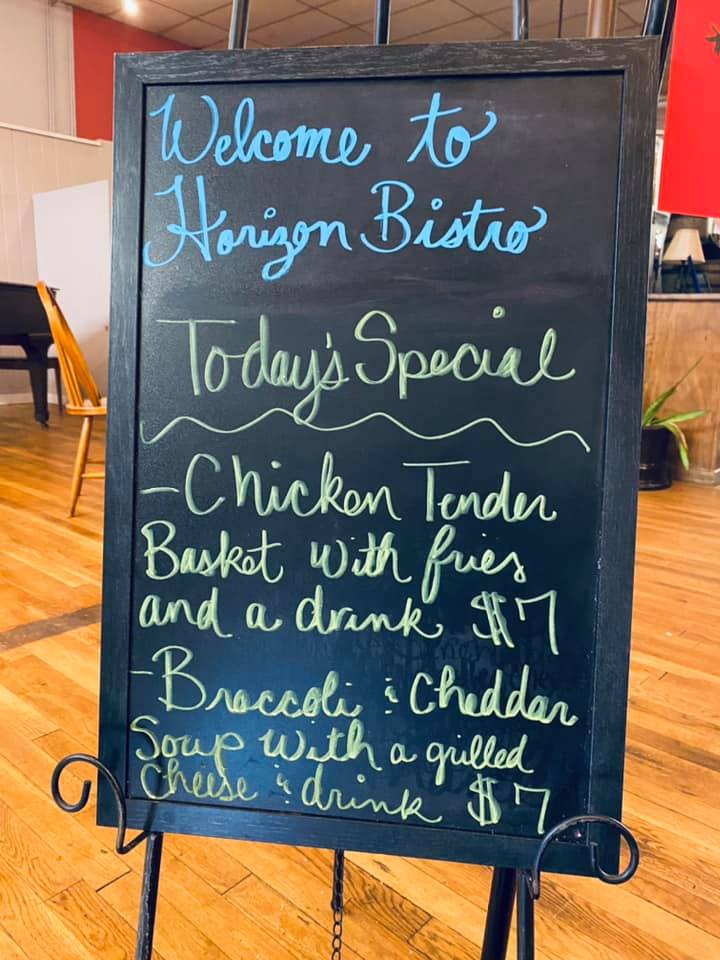 Welcome to
Horizon Bistro
Today's Special
-Chicken Tender
Basket with fries
and a drink $7
-Broccoli & Cheddar
Soup with a grilled
Cheese & drink $7